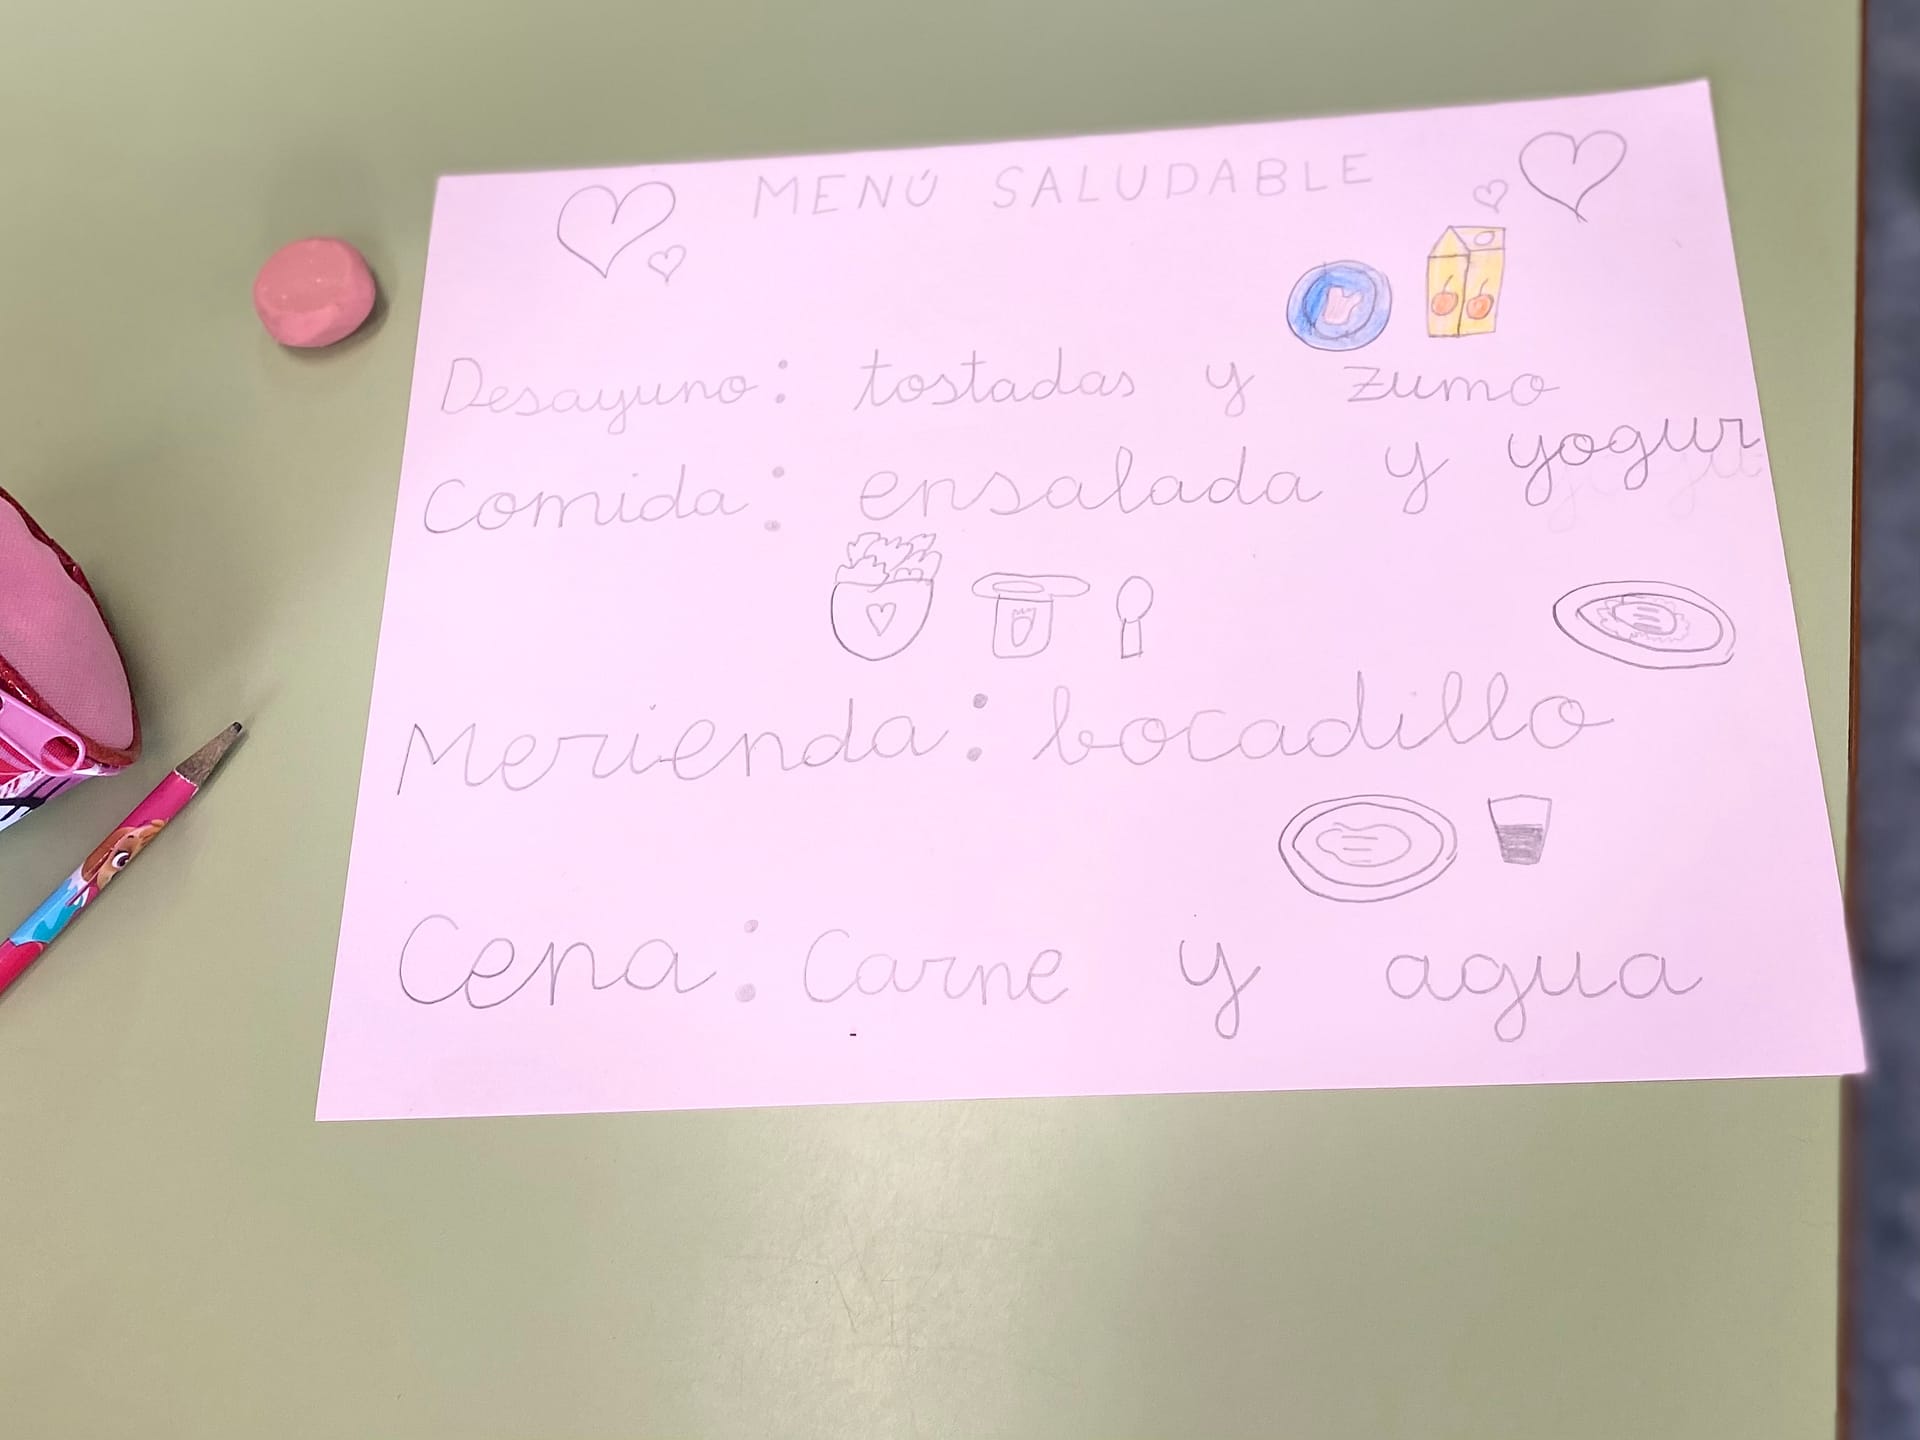 MENÚ SALUDABLE
Desayuno: tostadas y zumo
Comida: ensalada y yogur
Merienda: bocadillo
Cena: Carne y agua